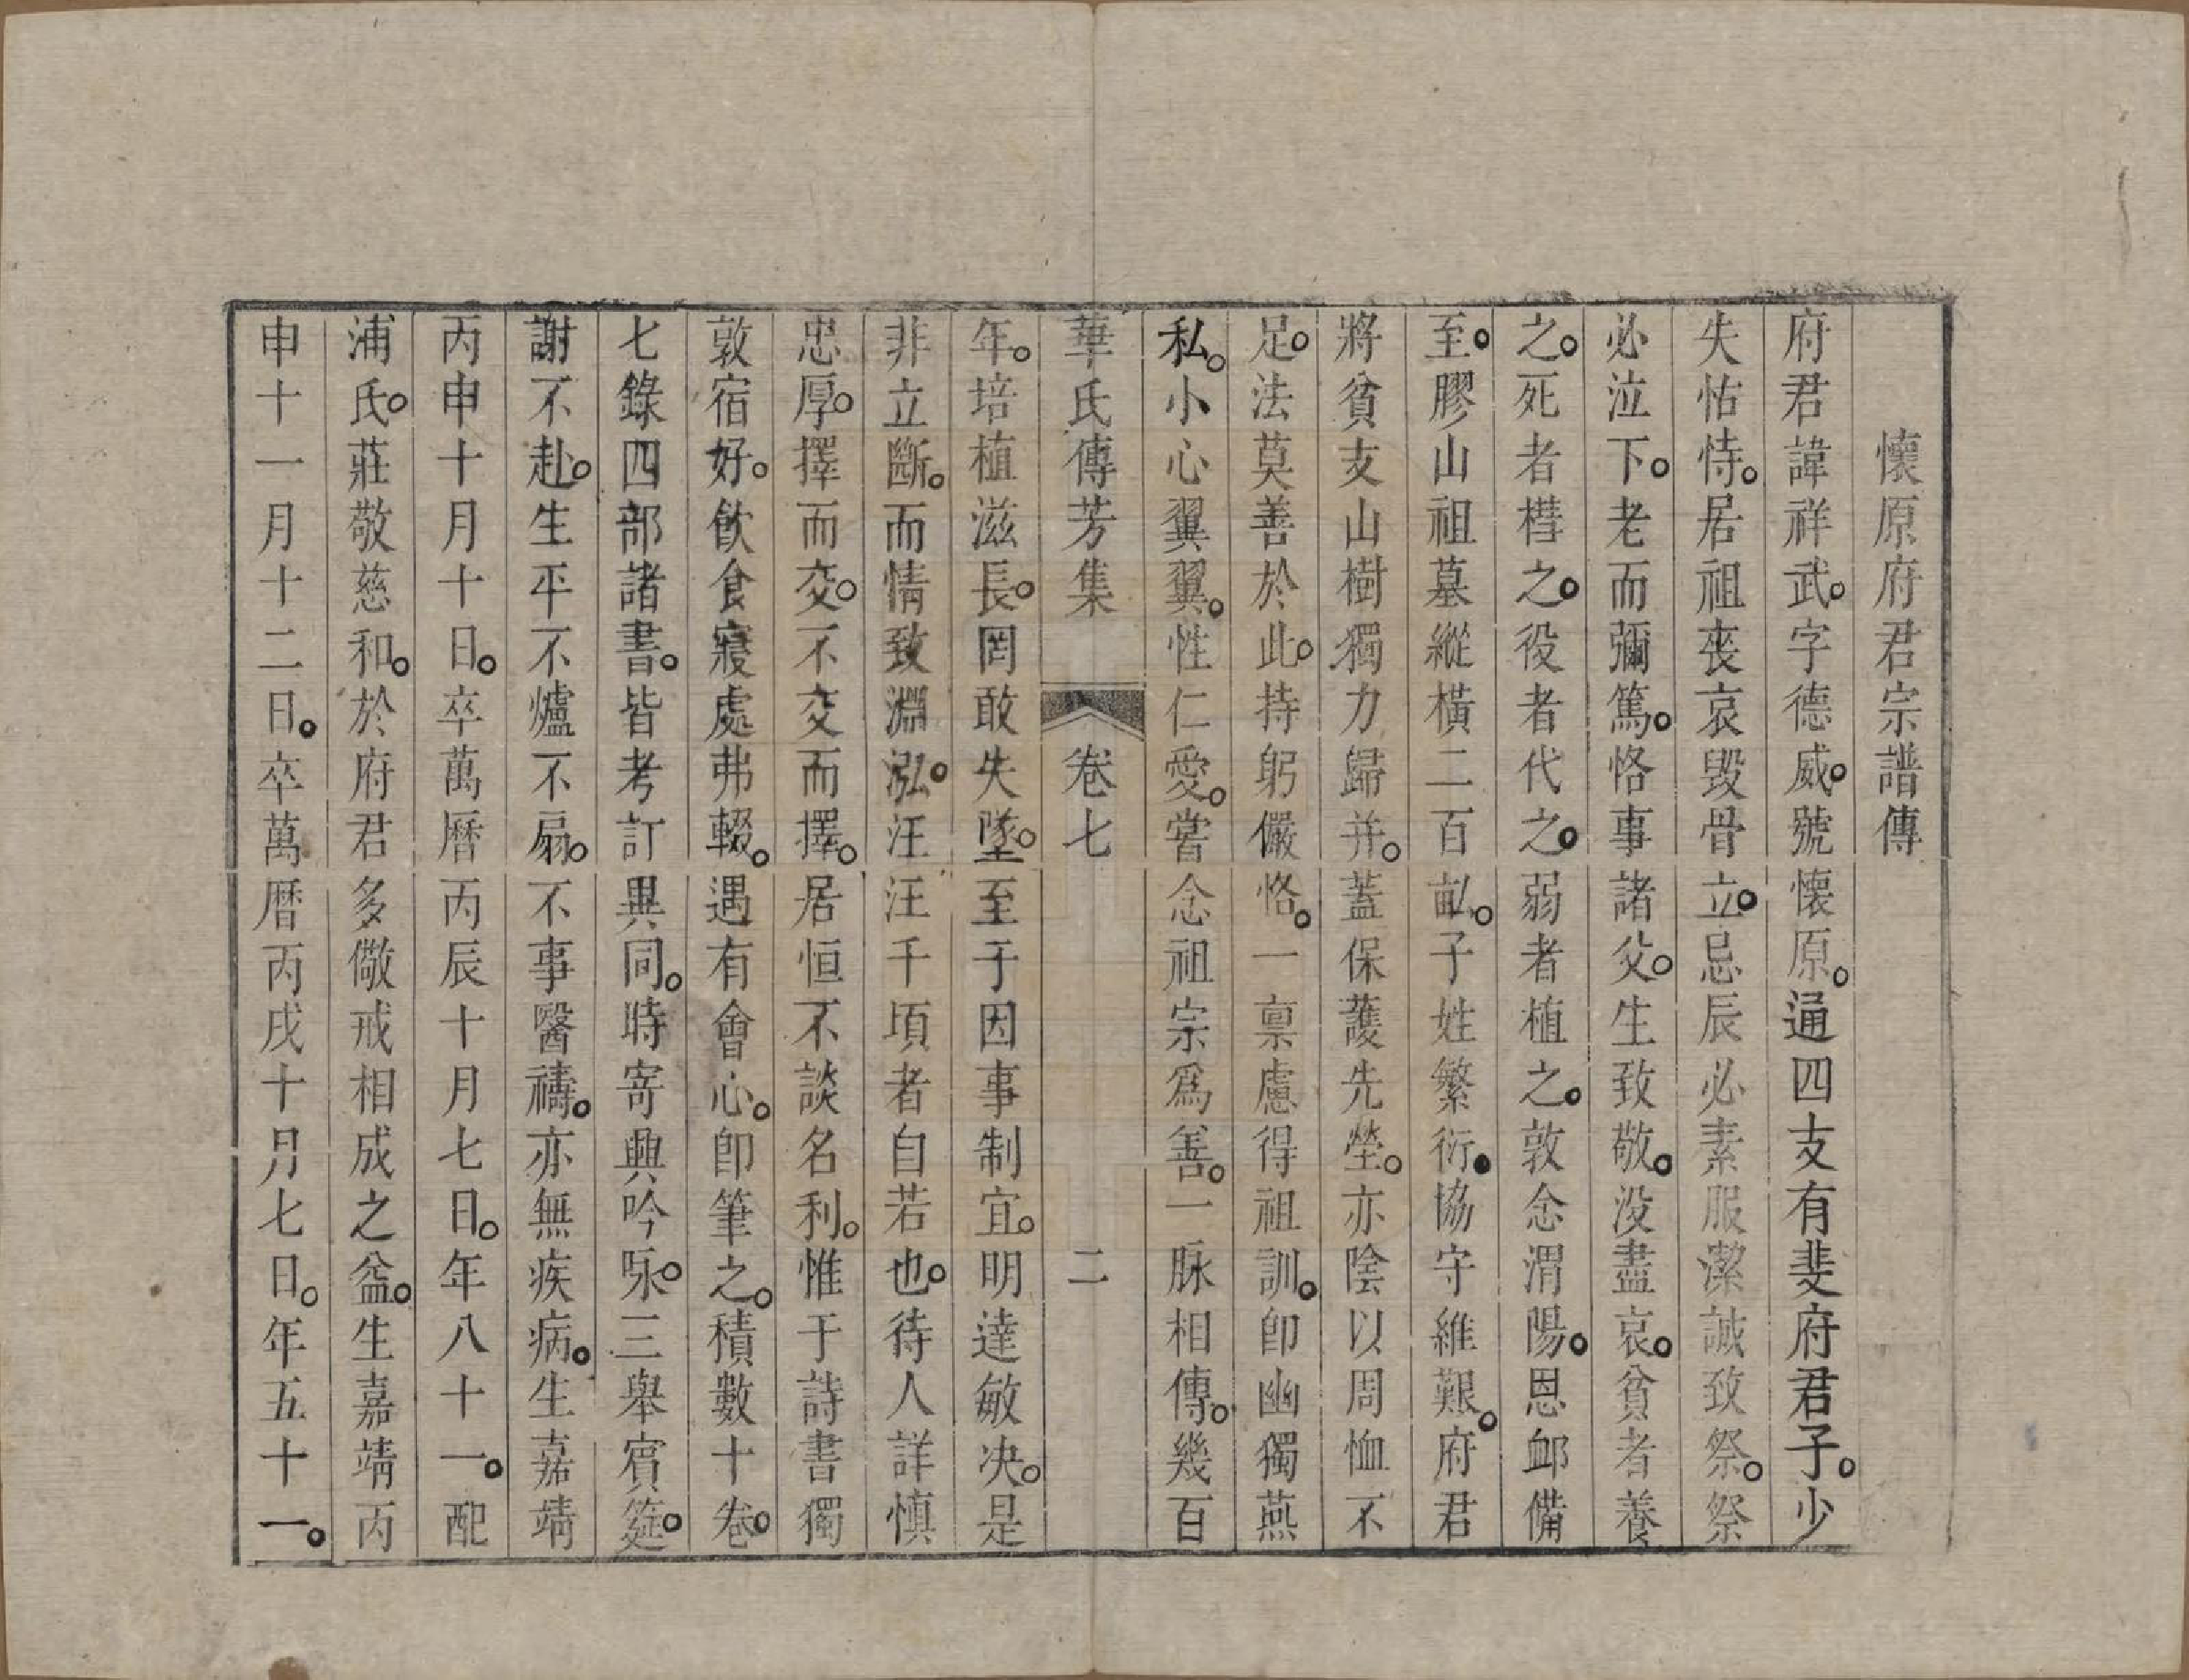 懷原府君宗譜傳
府君諱祥武。字德威。號懷原。通四支有斐府君子。少
失怙恃。居祖喪哀毀骨立。忌辰必素服潔誠致祭。祭
必泣下。老而彌篤。恪事諸父。生致敬。沒盡哀。貧者養
之。死者槥之。役者代之。弱者植之。敦念渭陽。恩卹備
至。膠山祖墓縱橫二百畝。子姓繁衍。協守維艱。府君
將貧支山樹獨力歸并。蓋保護先塋。亦陰以周恤不
足。法莫善於此。持躬儼恪。一禀慮得祖訓。卽幽獨燕
私。小心翼翼。性仁愛。嘗念祖宗爲善。一脉相傳。幾百
華氏傳芳集 卷七 二
年。培植滋長。罔敢失墜。至于因事制宜。明達敏决。是
非立斷。而情致淵泓。汪汪千頃者自若也。待人詳慎
忠厚。擇而交。不交而擇。居恒不談名利。惟于詩書獨
敦宿好。飮食寢處弗輟。遇有會心。卽筆之。積數十卷。
七錄四部諸書。皆考訂異同。時寄興吟咏。三舉賓筵。
謝不赴。生平不爐不扇。不事醫禱。亦無疾病。生嘉靖
丙申十月十日。卒萬曆丙辰十月七日。年八十一。配
浦氏。莊敬慈和。於府君多儆戒相成之益。生嘉靖丙
申十一月十二日。卒萬曆丙戌十月七日。年五十一。